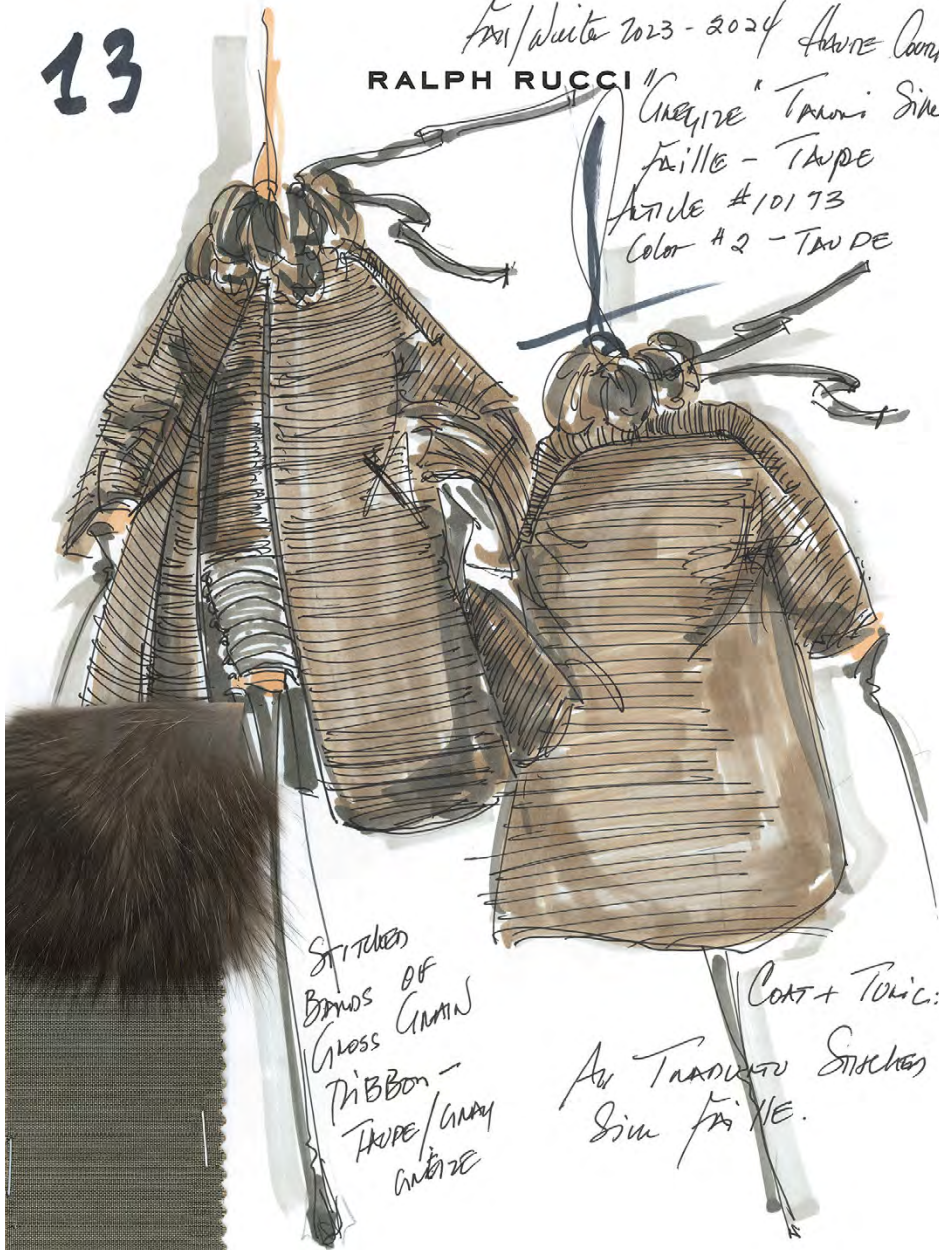 13
Fall/Winter 2023 - 2024 Haute Coutu
RALPH RUCCI
"Greeize" Taroni Silk
Faille - Taupe
Article #10193
Color #2 - Taupe
Stitched
Bands of
Gross Grain
Ribbon -
Taupe/Gray
Greize
Coat + Tunic:
All Stitched
Silk Faille.